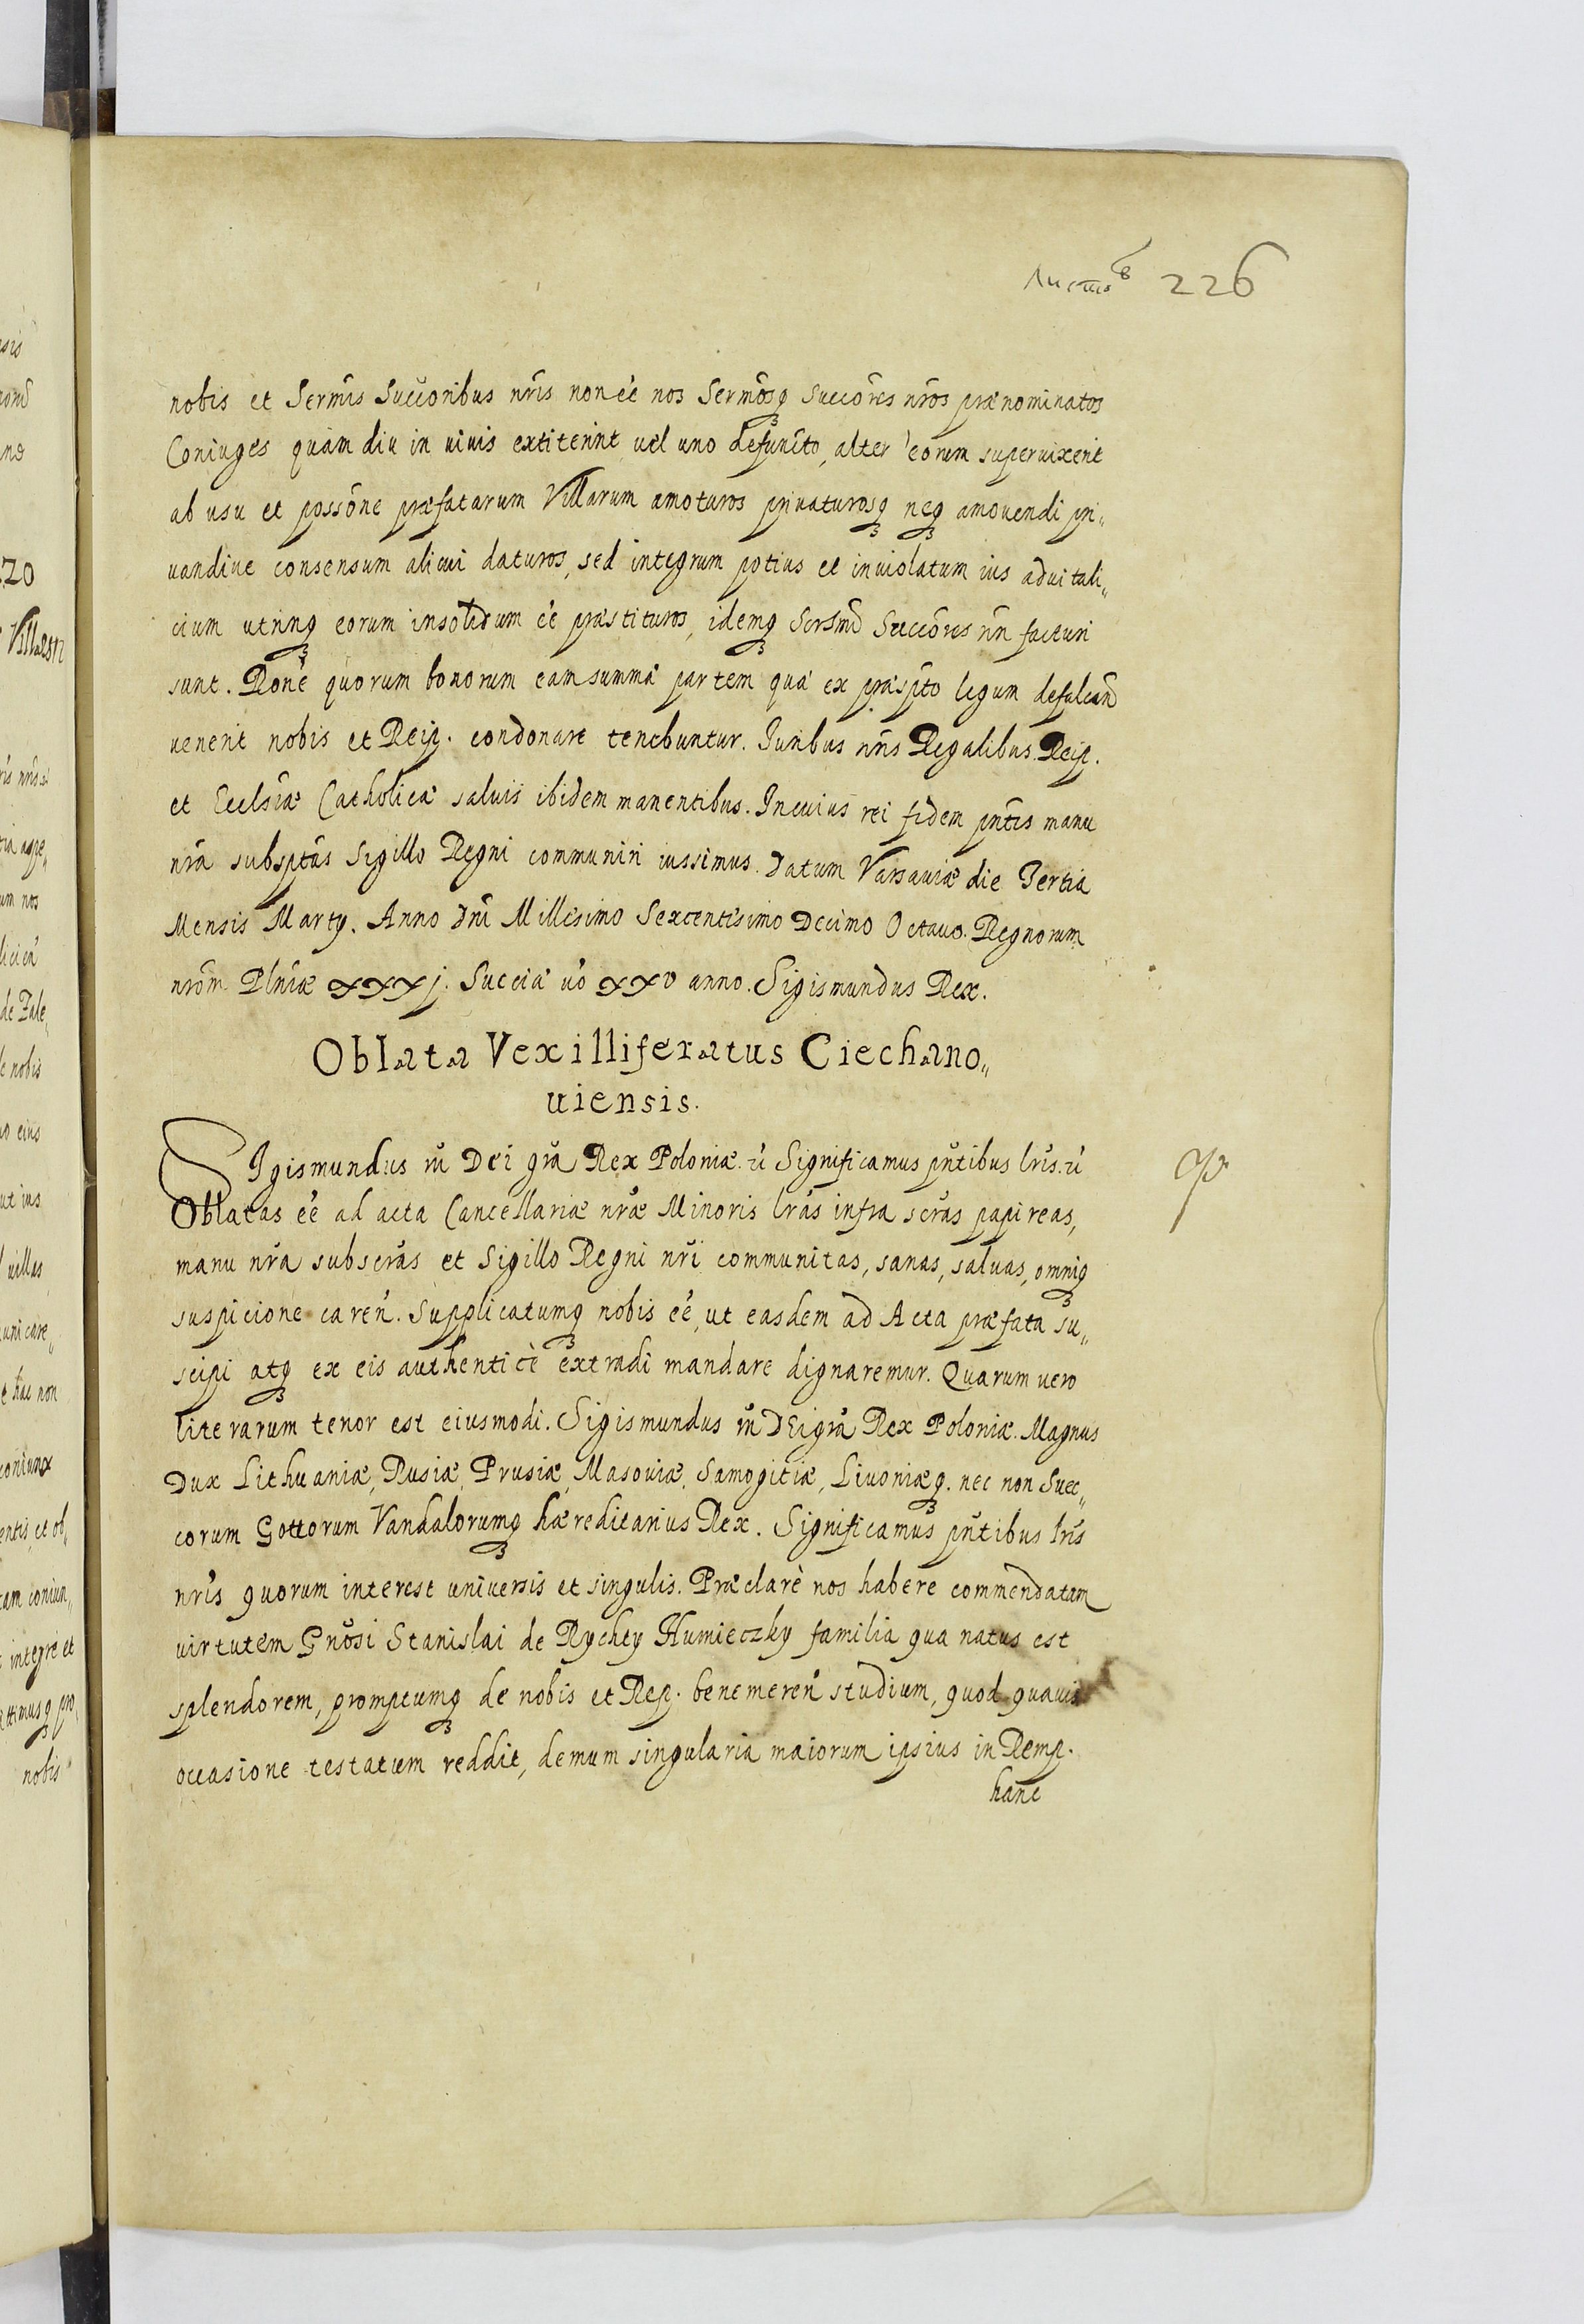 Листовъ 226
nobis et Serm̃is Succoribus nr̃is non ee nos Serm̃osq succores nr̃os prænominatos
Coniuges quamdiu in viuis extiterint, uel uno defuncto, alter eorum superuixerit
ab usu et possone præfatarum Villarum amoturos priuaturosq neq amouendi pri„
uandiue consensum alicui daturos, sed integrum potius et inuiolatum ius aduitali„
cium utriusq eorum insolidum ee præstituros, idemq Serm̃i Succores nr̃i facturi
sunt. Rone quorum bonorum eam summæ partem quæ ex præspto legum defalcan
uenerit nobis et Reip. condonare tenebuntur. Iuribus nr̃is Regalibus Reip.
et Ecclsiæ Catholicæ saluis ibidem manentibus. In cuius rei fidem pñtes manu
nr̃a subsptas Sigillo Regni communiri iussimus. Datum Varsauiæ die Tertia
Mensis Marty. Anno Dñi Millesimo Sexcentesimo Decimo Octauo. Regnorum
nr̃om Plniæ XXXj. Sueciæ uo XXV anno. Sigismundus Rex.
Oblata Vexilliferatus Ciechano„
uiensis.
Sigismundus iii Dei gra Rex Poloniæ. etc Significamus pñtibus lris. etc
Oblatas ee ad acta Cancellariæ nr̃æ Minoris lras infra scras papireas,
manu nr̃a subscras et Sigillo Regni nr̃i communitas, sanas, saluas, omniq
suspicione caren. Supplicatumq nobis ee, ut easdem ad Acta præfata su„
scipi atq ex eis authenticè extradi mandare dignaremur. Quarum uero
literarum tenor est eiusmodi. Sigismundus iii Dei gra Rex Poloniæ. Magnus
Dux Lithuaniæ, Rusiæ, Prusiæ, Masouiæ, Samogitiæ, Liuoniæq. nec non Suec„
corum Gottorum Vandalorumq hæreditarius Rex. Significamus pñtibus lris
nr̃is quorum interest uniuersis et singulis. Præclarè nos habere commendatam
uirtutem Gnosi Stanislai de Rychty Humieczky familiæ qua natus est
splendorem, promptumq de nobis et Rep. benemeren studium, quod quauis
occasione testatum reddit, demum singularia maiorum ipsius in Remp.
hanc